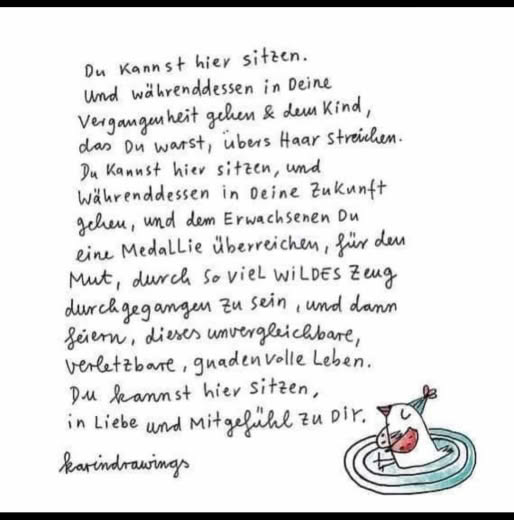 Du kannst hier sitzen.
Und währenddessen in Deine
Vergangenheit gehen & dem Kind,
das Du warst, übers Haar streichen.
Du kannst hier sitzen, und
währenddessen in Deine Zukunft
gehen, und dem Erwachsenen Du
eine Medallie überreichen, für den
Mut, durch so viel WILDES Zeug
durchgegangen zu sein, und dann
feiern, dieses unvergleichbare,
verletzbare, gnadenvolle Leben.
Du kannst hier sitzen,
in Liebe und Mitgefühl zu Dir.
karindrawings